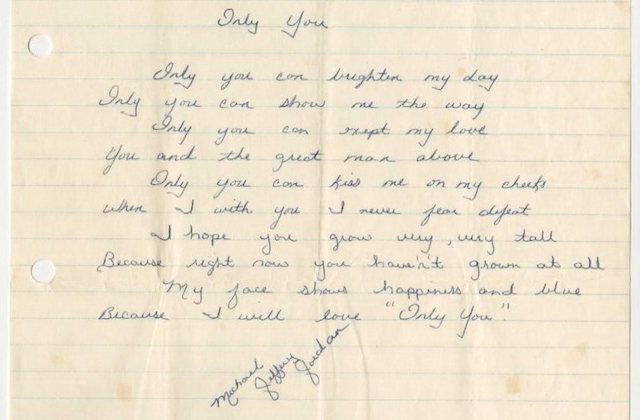 Only You
Only you can brighten my day
Only you can show me the way
Only you can exept my love
You and the great man above
Only you can kiss me on my cheeks
When I with you I never fear defeat
I hope you grow very, very tall
Because right now you haven't grown at all
My face shows happiness and blue
Because I will love "Only You"
Michael
Jeffrey
Jordan